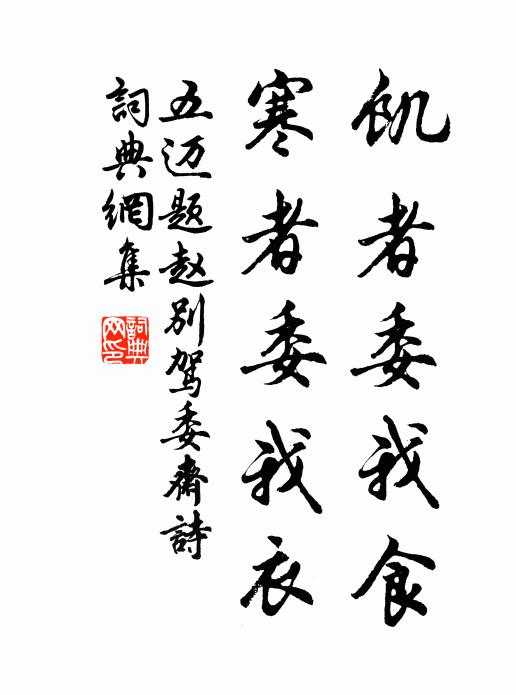 飢者委我食
寒者委我衣
五迈题赵别駕委齋詩
詞典網集
詞典网印